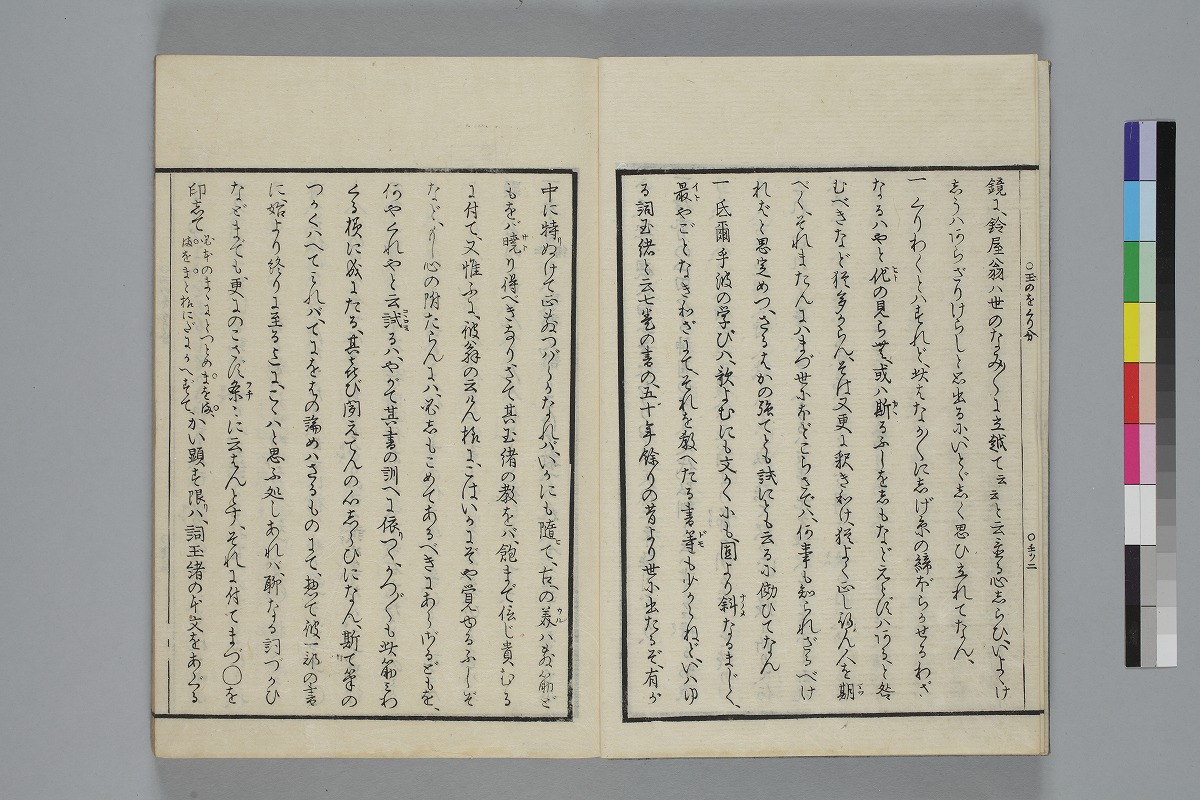 ○玉のをくり分
○玉ノ二
鏡に、鈴屋翁ハ世のなみ〳〵に立越て云云と云
しうハあらざりけらしと思出るにいとゞしく思ひ立れてなん、
一くりわくとハすれど此はなか〳〵にしげ糸の
なるハやと他の見らせ、或ハ斯るふしをしもなどえらびハあると咎
むべきなど猶多からん、そは又更に釈きわけ、猶よく正し給ん人を期
べく、それまたんにハまづ世にほどこらさでハ、何事も知られざるべけ
れバと思定めつ、さるはかの強てとも試にとも云るに倣ひてなん
一氐爾乎波の学びハ、歌よむにも文かくにも固より斜なるまじく、
最やごとなきわざにてそれを教へたる書等も少からねど、いハゆ
る詞玉緒と云七巻の書の、五十年餘りの昔より世に出たるぞ、有が
中に特ぬけて正しうつバらなれバ、いかにも隨て、古への美ハしき筋ど
もをバ曉り得べきなりさて其玉緒の教をバ、飽まで信じ貴むる
に付て、又惟ふに、彼翁の云けん様に、こはいかにぞや覚ゆるふしぞ
など、もし心の附たらんにハ、必しもこめてあるべきにあらざるどもを、
何やくれやと云試るハ、やがて其書の訓へに依つゝ、かつ〴〵も此筋をわ
くる様に成にたる、其喜び聞えてんの心しらひになん、斯て筆の
つかくハへてこれバ、てにをはの論めハさるものにて、惣て彼一部の書
に、始より終りに至るまでに、こハと思ふ処しあれバ聊なる詞づかひ
などまでも、更にのこさず条々に云はんとす、それに付てまづ○を
印して
かい顕す限ハ、詞玉緒の本文をあぐる